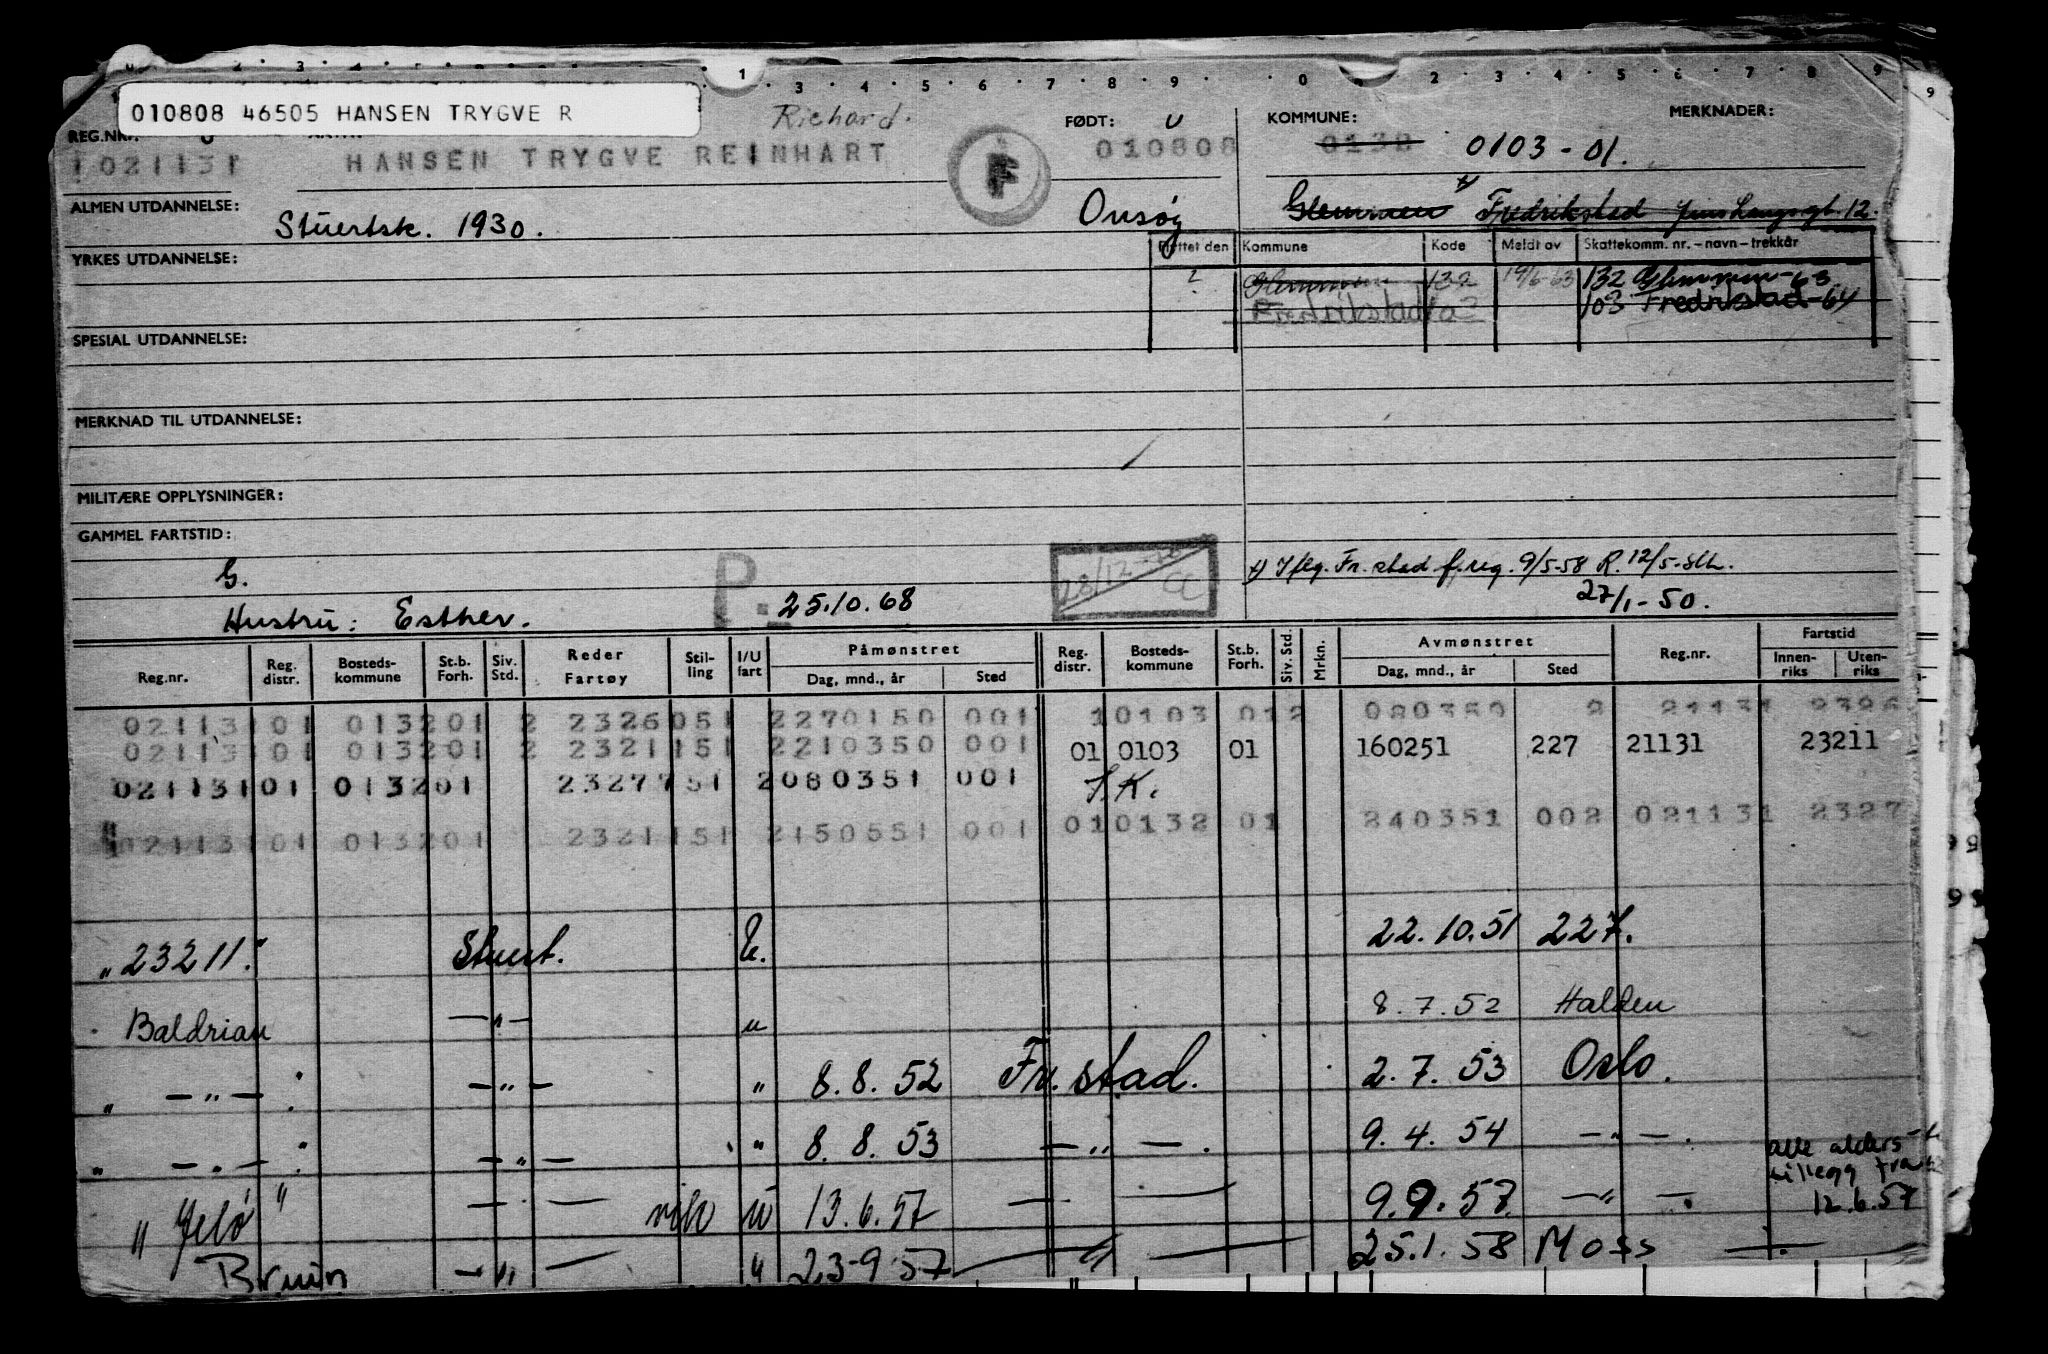 010808 46505 HANSEN TRYGVE R
Richard.
REG.NR.: FØDT: U KOMMUNE: MERKNADER:
021131 HANSEN TRYGVE REINHART F 010808 0138 0103-01.
ALMEN UTDANNELSE: Stuertsk. 1930. Onsøy Glemmen Fredrikstad Jens Langsgt. 12.
YRKES UTDANNELSE:
Flyttet den Kommune Kode Meldt av Skattekomm. nr. – navn – trekkår
? Glemmen 132 19/6-63 132 Glemmen-63
Fredrikstad 103 Fredrikstad-64
SPESIAL UTDANNELSE:
MERKNAD TIL UTDANNELSE:
MILITÆRE OPPLYSNINGER:
GAMMEL FARTSTID:
G. P. 28/12 CC x) Iflg. Fr.stad f.reg. 9/5-58 R. 12/5-
Hustru: Esther. 25.10.68 27/1-50.
Reg.nr. Reg. distr. Bosteds-kommune St.b. Forh. Siv. Std. Reder Fartøy Stil-ling I/U fart Påmønstret Dag, mnd., år Sted Reg. distr. Bosteds-kommune St.b. Forh. Siv. Std. Mrkn. Avmønstret Dag, mnd., år Sted Reg.nr. Fartstid Innen-riks Uten-riks
02113101 013201 2 2326051 2270150 001 10103 012 080350 2 21131 2326
02113101 013201 2 2321151 2210350 001 01 0103 01 160251 227 21131 23211
02113101 013201 2327751 2080351 001 I.K.
02113101 013201 2321151 2150551 001 010132 01 240351 002 021131 2327
"23211." Stuert. U. 22.10.51 227.
Baldrian —"— " 8.7.52 Halden
" —"— " —"— " 8.8.52 Fr.stad. 2.7.53 Oslo.
" —"— " —"— " 8.8.53 —"—. 9.4.54 —"—.
alle alders-
tillegg fra
12.6.57
"Jelø" —"— vik u 13.6.57 — — 9.9.57. —"—.
Bruin —"— " 23-9 57 —"— 25.1.58 Moss